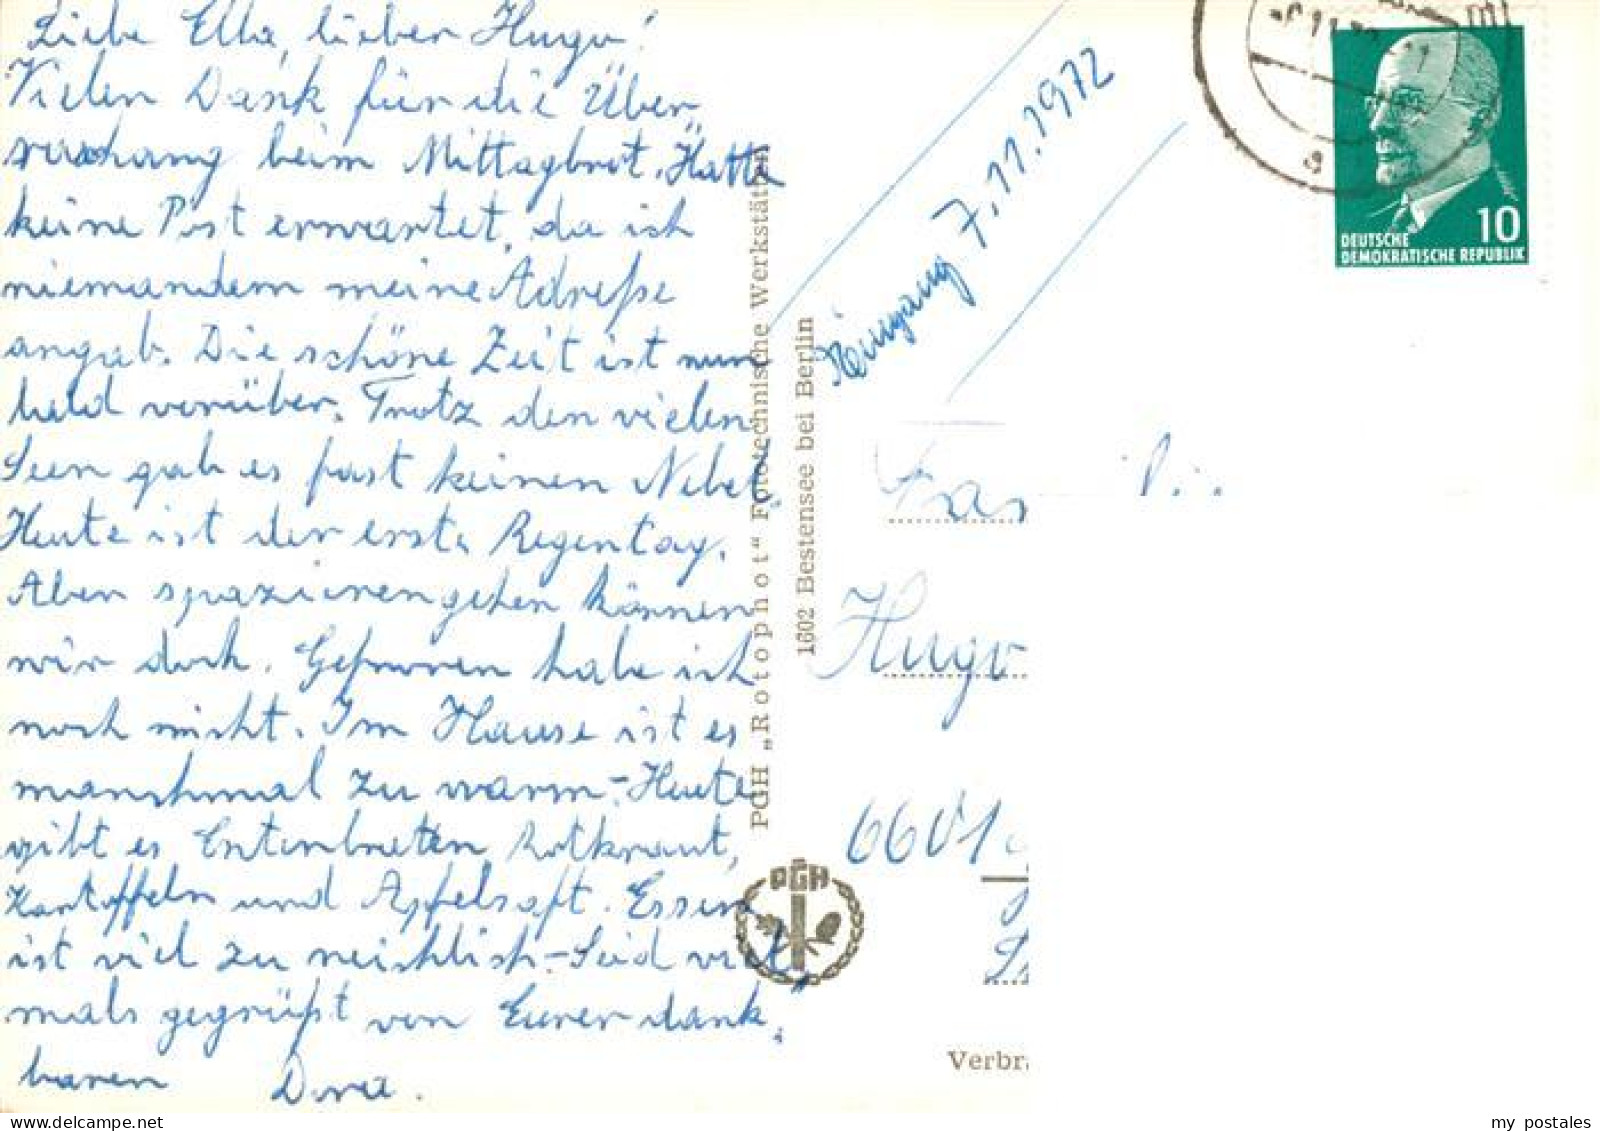 Liebe Ella, lieber Hugo!
Vielen Dank für die Über-
raschung beim Mittagbrot. Hatte
keine Post erwartet, da ich
niemandem meine Adreße
angab. Die schöne Zeit ist nun
bald vorüber. Trotz den vielen
Seen gab es fast keinen Nebel.
Heute ist der erste Regentag.
Aber spazierengehen können
wir doch. Gefroren habe ich
noch nicht. Im Hause ist es
manchmal zu warm. - Heute
gibt es Entenbraten Rotkraut,
Kartoffeln und Apfelsaft. Essen
ist viel zu reichlich. - Seid viel-
mals gegrüßt von Eurer dank-
baren Dora.
PGH „Rotophot“ Fototechnische Werkstätten
1602 Bestensee bei Berlin
PGH
Eingang 7.11.1972
10
DEUTSCHE
DEMOKRATISCHE REPUBLIK
Hugo
6601
Verbr
my postales